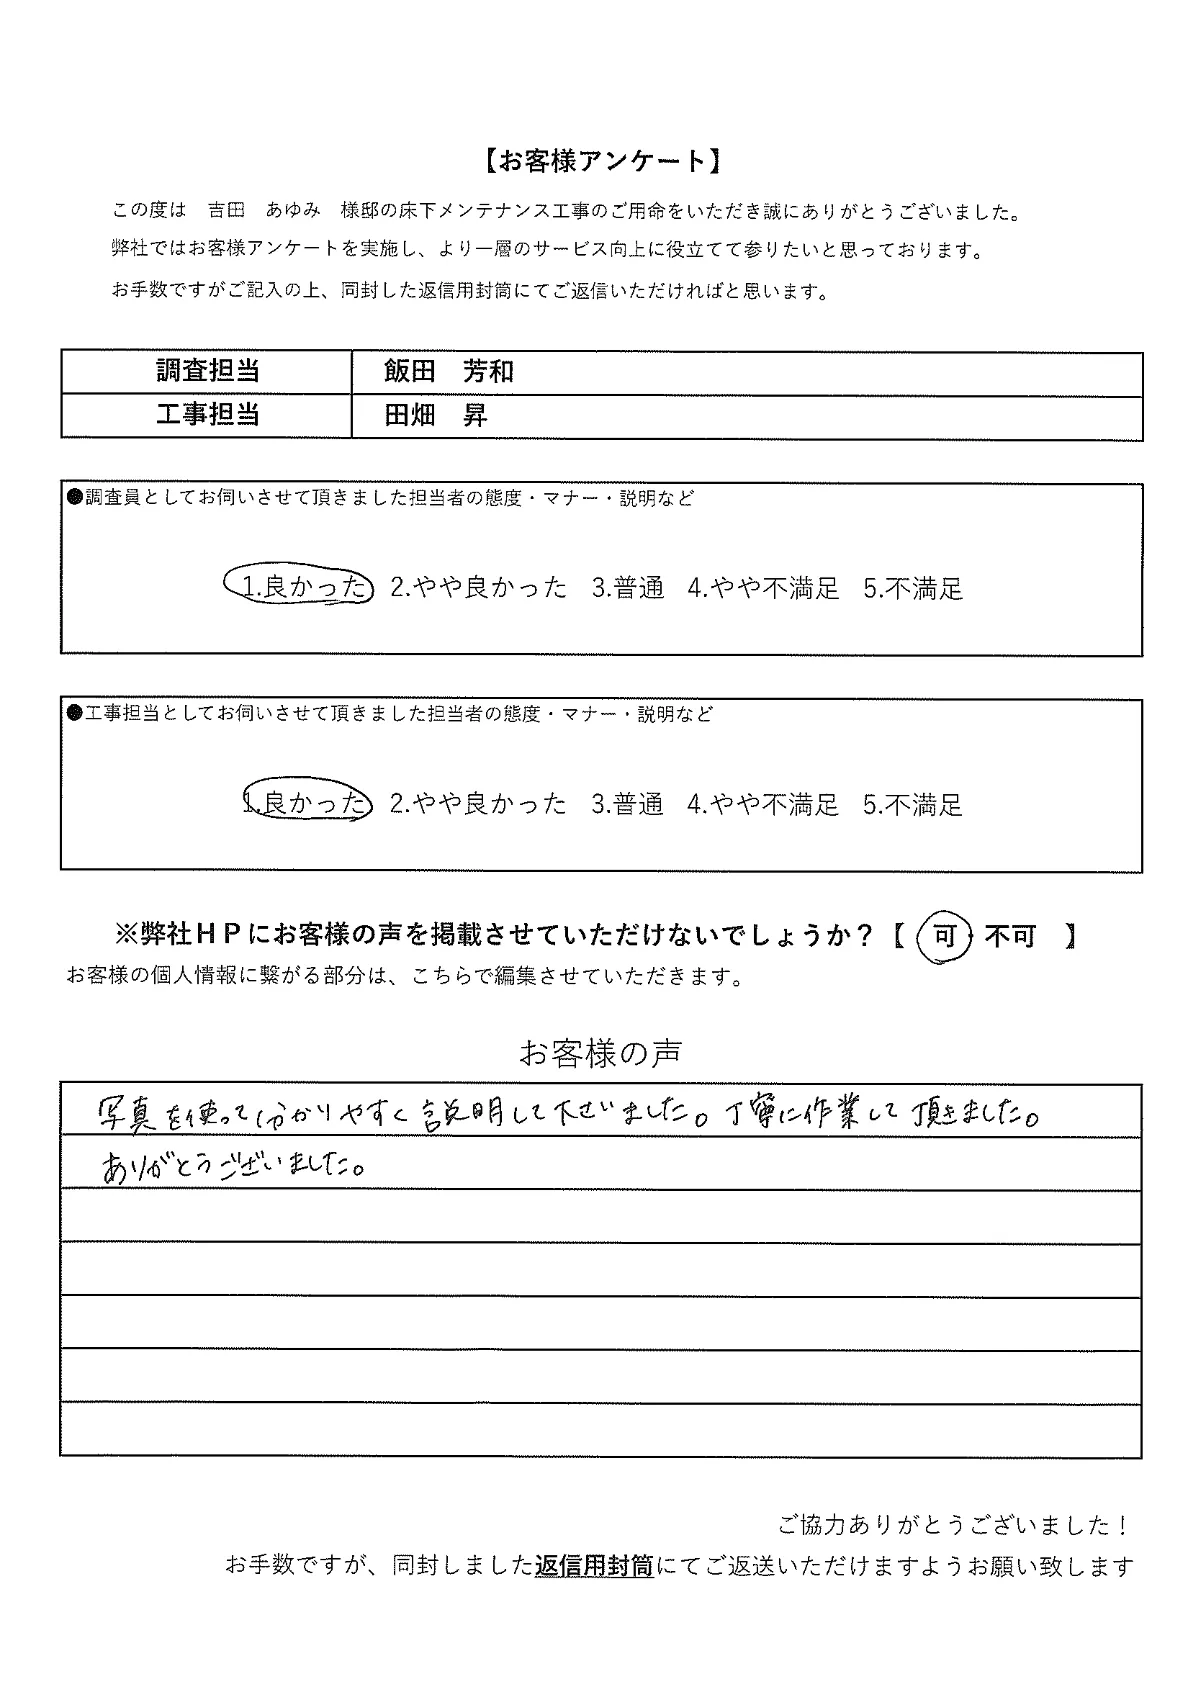 【お客様アンケート】
この度は　吉田　あゆみ　様邸の床下メンテナンス工事のご用命をいただき誠にありがとうございました。
弊社ではお客様アンケートを実施し、より一層のサービス向上に役立てて参りたいと思っております。
お手数ですがご記入の上、同封した返信用封筒にてご返信いただければと思います。
調査担当　飯田　芳和
工事担当　田畑　昇
●調査員としてお伺いさせて頂きました担当者の態度・マナー・説明など
1.良かった　2.やや良かった　3.普通　4.やや不満足　5.不満足
●工事担当としてお伺いさせて頂きました担当者の態度・マナー・説明など
1.良かった　2.やや良かった　3.普通　4.やや不満足　5.不満足
※弊社ＨＰにお客様の声を掲載させていただけないでしょうか？【　可・不可　】
お客様の個人情報に繋がる部分は、こちらで編集させていただきます。
お客様の声
写真を使って分かりやすく説明して下さいました。丁寧に作業して頂きました。
ありがとうございました。
ご協力ありがとうございました！
お手数ですが、同封しました返信用封筒にてご返送いただけますようお願い致します